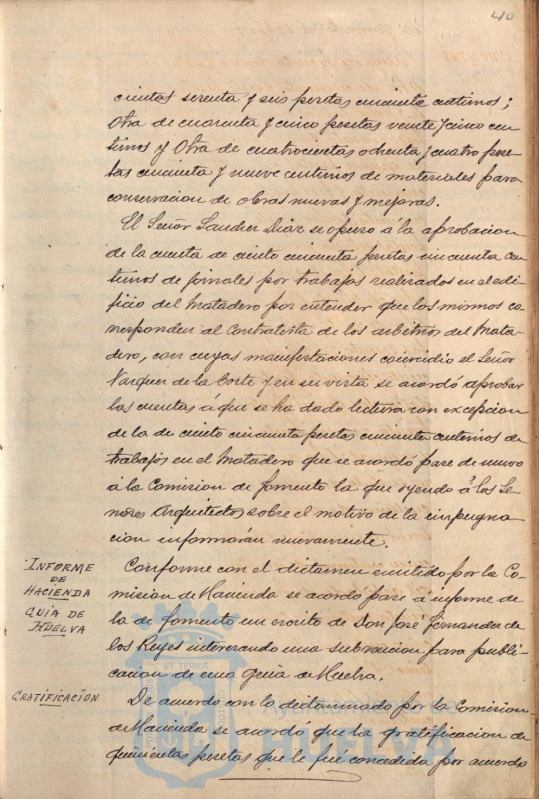 40
cientas setenta y seis pesetas cincuenta centimos;
Otra de cuarenta y cinco pesetas veinte y cinco cen-
timos y Otra de cuatrocientas ochenta y cuatro pese-
tas cincuenta y nueve centimos de materiales para
conservacion de obras nuevas y mejoras.
El Señor Sanchez Diaz se opuso á la aprobacion
de la cuenta de ciento cincuenta pesetas cincuenta cen-
timos de jornales por trabajos realizados en el edi-
ficio del Matadero por entender que los mismos co-
rresponden al Contratista de los arbitrios del Mata-
dero, con cuyas manifestaciones coincidio el Señor
Vazquez de la Corte y en su vista se acordó aprobar
las cuentas á que se ha dado lectura con excepcion
de la de ciento cincuenta pesetas cincuenta centimos de
trabajos en el Matadero que se acordó pase de nuevo
á la Comision de fomento la que oyendo á los Se-
ñores Arquitectos sobre el motivo de la impugna-
cion informarán nuevamente.
INFORME
DE
HACIENDA
GUIA DE
HUELVA
Conforme con el dictamen emitido por la Co-
mision de Hacienda se acordo pase á informe de
la de fomento un escrito de Don José Fernandez de
los Reyes interesando una subvencion para publi-
cacion de una Guia de Huelva.
GRATIFICACION
De acuerdo con lo dictaminado por la Comision
de Hacienda se acordó que la gratificacion de
quinientas pesetas que le fué concedida por acuerdo
Ayuntamiento
HUELVA